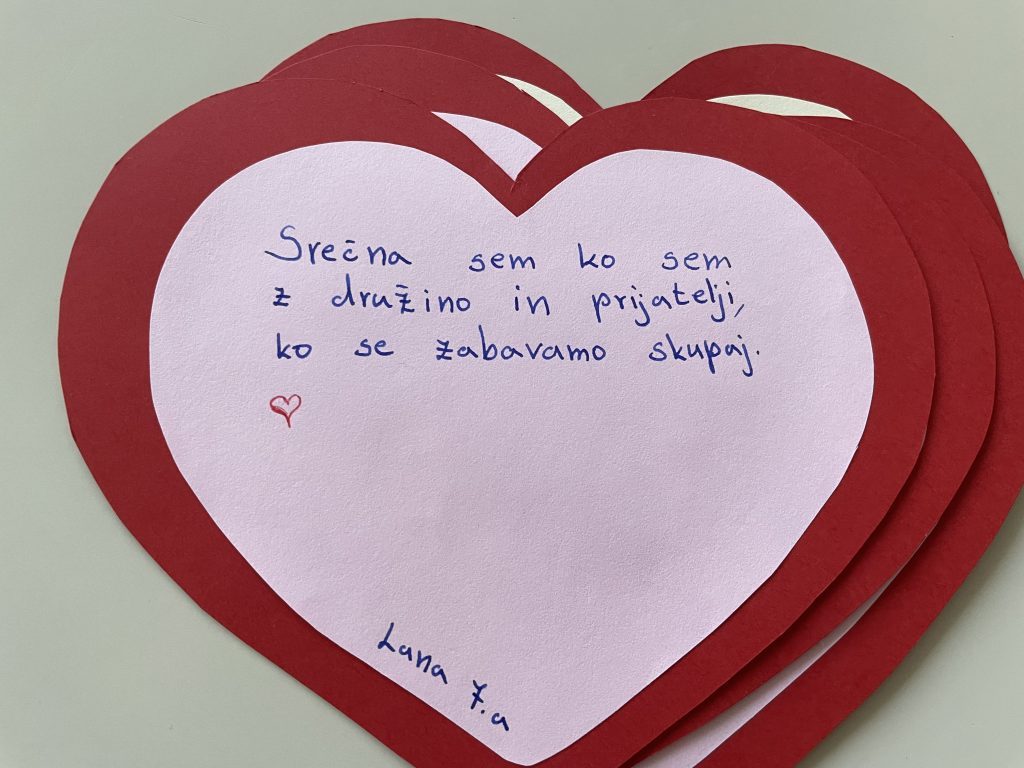 Srečna sem ko sem
z družino in prijatelji,
ko se zabavamo skupaj.
Lana 7.a